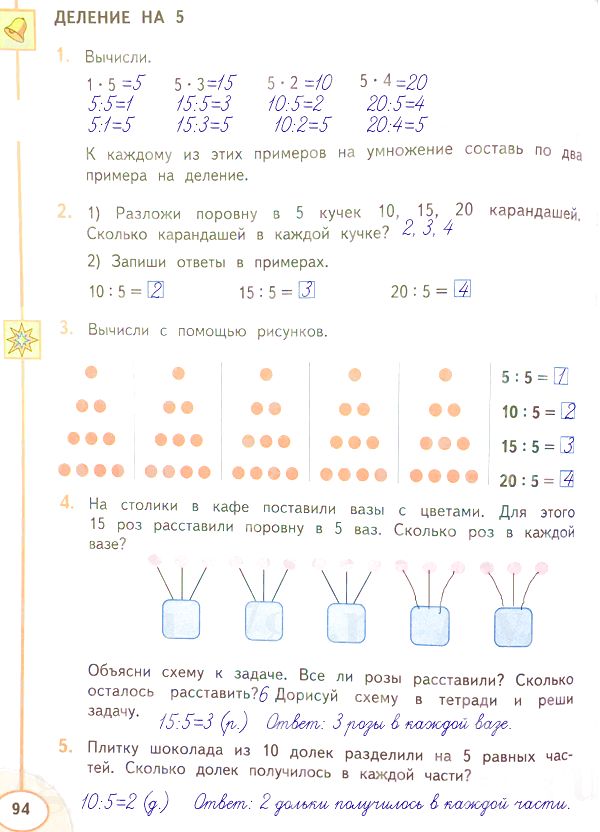 ДЕЛЕНИЕ НА 5
1. Вычисли.
1 · 5 =5 5 · 3 =15 5 · 2 =10 5 · 4 =20
5:5=1 15:5=3 10:5=2 20:5=4
5:1=5 15:3=5 10:2=5 20:4=5
К каждому из этих примеров на умножение составь по два
примера на деление.
2. 1) Разложи поровну в 5 кучек 10, 15, 20 карандашей.
Сколько карандашей в каждой кучке? 2, 3, 4
2) Запиши ответы в примерах.
10 : 5 = 2 15 : 5 = 3 20 : 5 = 4
3. Вычисли с помощью рисунков.
5 : 5 = 1
10 : 5 = 2
15 : 5 = 3
20 : 5 = 4
4. На столики в кафе поставили вазы с цветами. Для этого
15 роз расставили поровну в 5 ваз. Сколько роз в каждой
вазе?
Объясни схему к задаче. Все ли розы расставили? Сколько
осталось расставить? 6 Дорисуй схему в тетради и реши
задачу. 15:5=3 (р.) Ответ: 3 розы в каждой вазе.
5. Плитку шоколада из 10 долек разделили на 5 равных час-
тей. Сколько долек получилось в каждой части?
94 10:5=2 (д.) Ответ: 2 дольки получилось в каждой части.